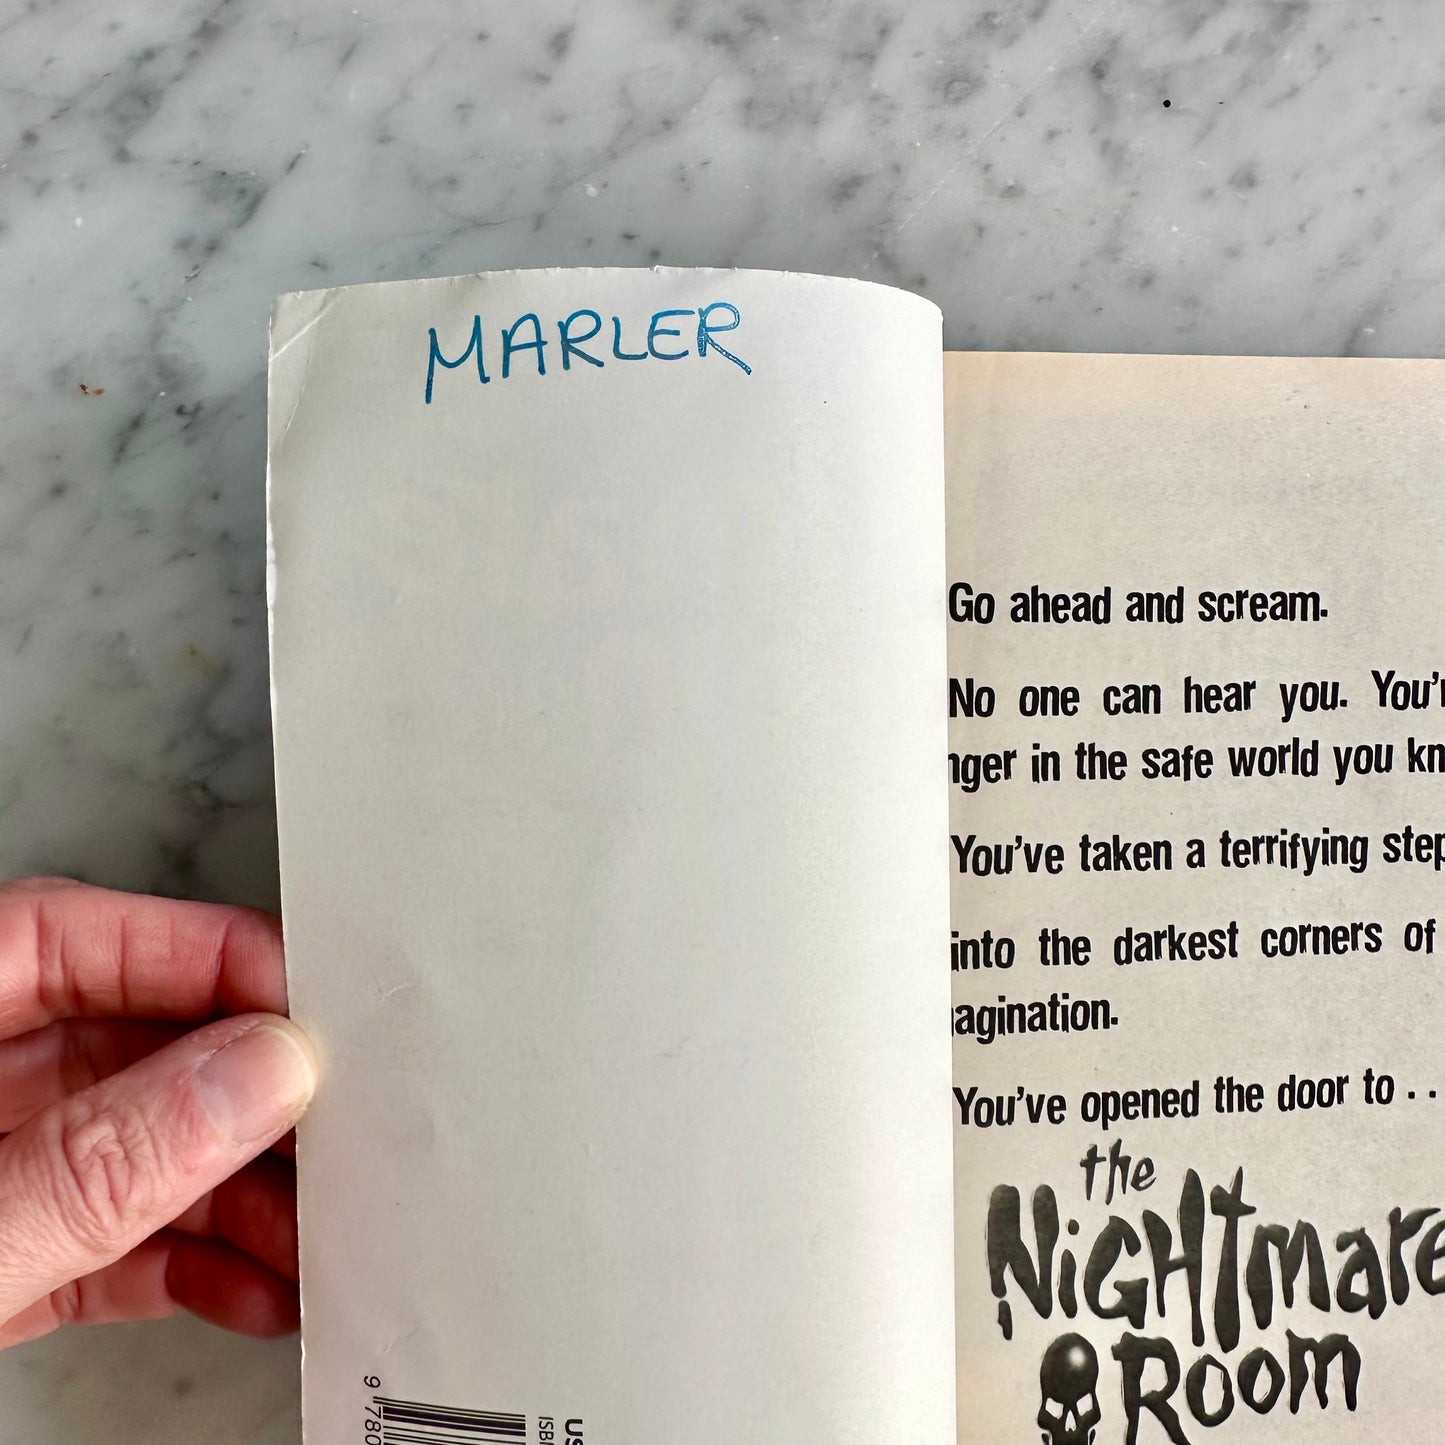 MARLER
Go ahead and scream.
No one can hear you. You'r
nger in the safe world you kn
You've taken a terrifying step
into the darkest corners of
agination.
You've opened the door to . .
the
NiGHtmare
Room
9 780
ISBN
US